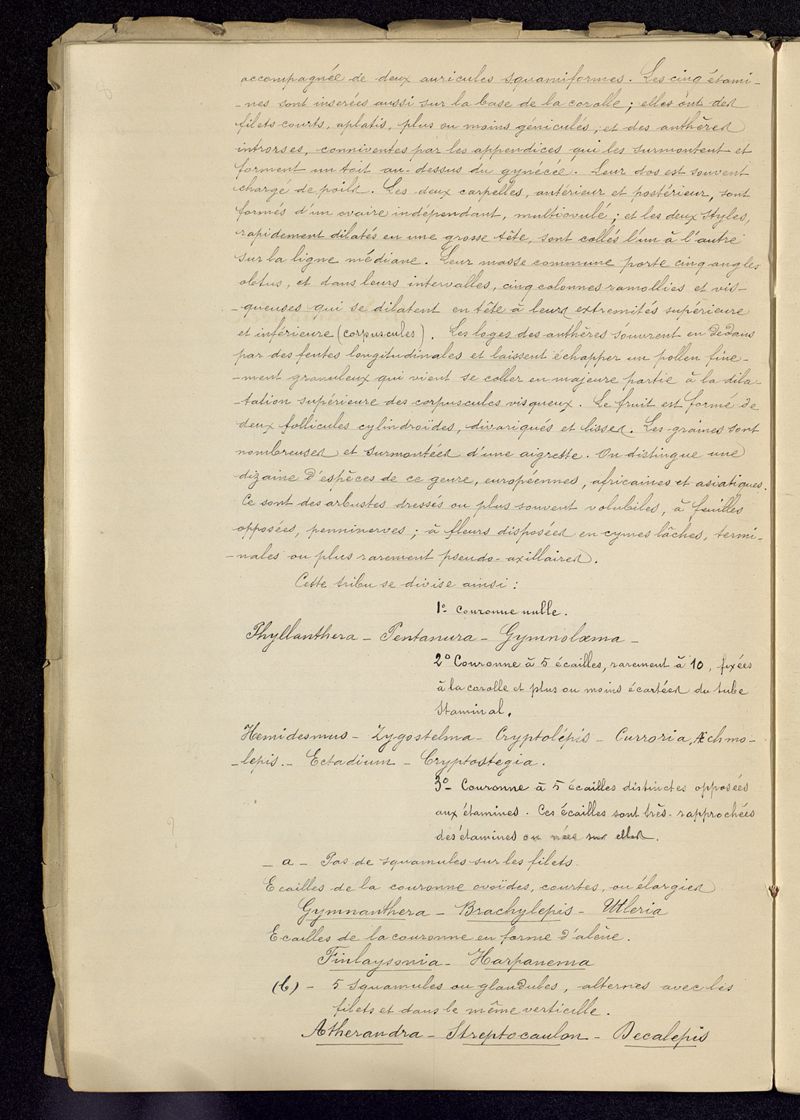 accompagnée de deux auricules squamiformes. Les cinq étami-
-nes sont insérées aussi sur la base de la corolle ; elles ont des
filets courts, aplatis, plus ou moins géniculés, et des anthères
introrses, conniventes par les appendices qui les surmontent et
forment un toit au-dessus du gynécée. Leur dos est souvent
chargé de poils. Les deux carpelles, antérieur et postérieur, sont
formés d'un ovaire indépendant, multiovulé ; et les deux styles,
rapidement dilatés en une grosse tête, sont collés l'un à l'autre
sur la ligne médiane. Leur masse commune porte cinq angles
obtus, et dans leurs intervalles, cinq colonnes ramollies et vis-
-queuses qui se dilatent en tête à leurs extremités supérieure
et inférieure (corpuscules). Les loges des anthères s'ouvrent en dedans
par des fentes longitudinales et laissent échapper un pollen fine-
-ment granuleux qui vient se coller en majeure partie à la dila-
-tation supérieure des corpuscules visqueux. Le fruit est formé de
deux follicules cylindroïdes, divariqués et lisses. Les graines sont
nombreuses et surmontées d'une aigrette. On distingue une
dizaine d'espèces de ce genre, européennes, africaines et asiatiques.
Ce sont des arbustes dressés ou plus souvent volubiles, à feuilles
opposées, penninerves ; à fleurs disposées en cymes lâches, termi-
-nales ou plus rarement pseudo-axillaires.
Cette tribu se divise ainsi :
1º Couronne nulle.
Phyllanthera - Pentanura - Gymnolæma -
2º Couronne à 5 écailles, rarement à 10, fixées
à la corolle et plus ou moins écartées du tube
Staminal.
Hemidesmus - Zygostelma - Cryptolépis - Curroria, Æchmo-
-lepis. - Ectadium - Cryptostegia.
3º - Couronne à 5 écailles distinctes opposées
aux étamines. Ces écailles sont très-rapprochées
des étamines ou nées sur elles.
- a - Pas de squamules sur les filets.
Ecailles de la couronne ovoïdes, courtes, ou élargies
Gymnanthera - Brachylepis - Utleria
Ecailles de la couronne en forme d'alêne.
Finlaysonia - Harpanema
(b) - 5 squamules ou glandules, alternes avec les
filets et dans le même verticille.
Atherandra - Streptocaulon - Decalepis